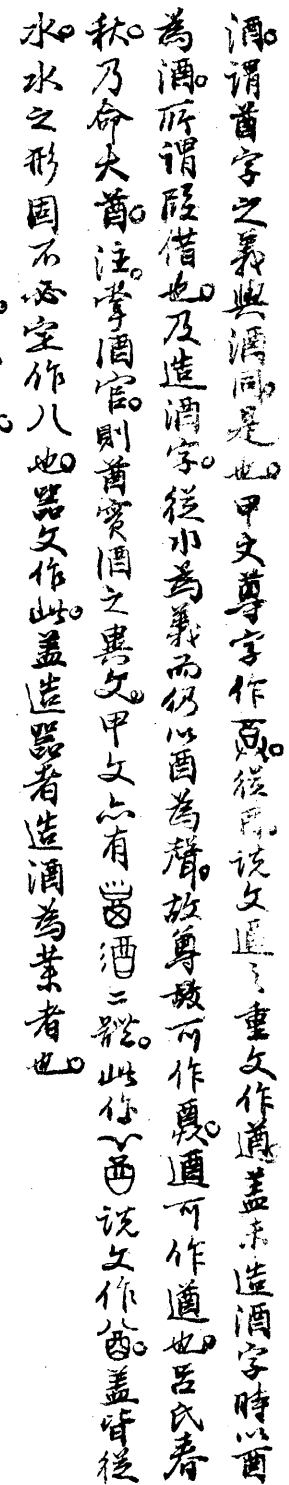 酒。謂酋字之義與酒同。是也。甲文尊字作𢍜。從酉。説文逎之重文作遒。蓋未造酒字時以酉
為酒。所謂叚借也。及造酒字。從水為義而仍以酉為聲。故尊敄可作𢍜。逎可作遒也。呂氏春
秋。乃命大酋。注。掌酒官。則酋實酒之異文。甲文亦有酒二體。此作酋説文作酋。蓋皆從
水。水之形固不必定作八也。器文作此。蓋造器者造酒為業者也。